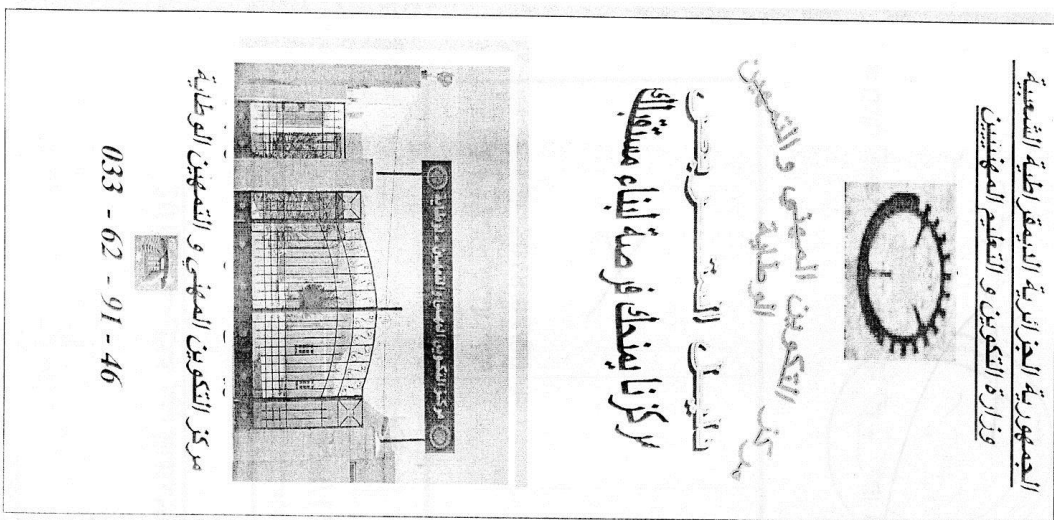 الجمهورية الجزائرية الديمقراطية الشعبية
وزارة التكوين و التعليم المهنيين
مركز التكوين المهني و التمهين
الوطاية
دليل
مركزنا يمنحك فرصة لبناء مستقبلك
مركز التكوين المهني و التمهين الوطاية
033 - 62 - 91 - 46